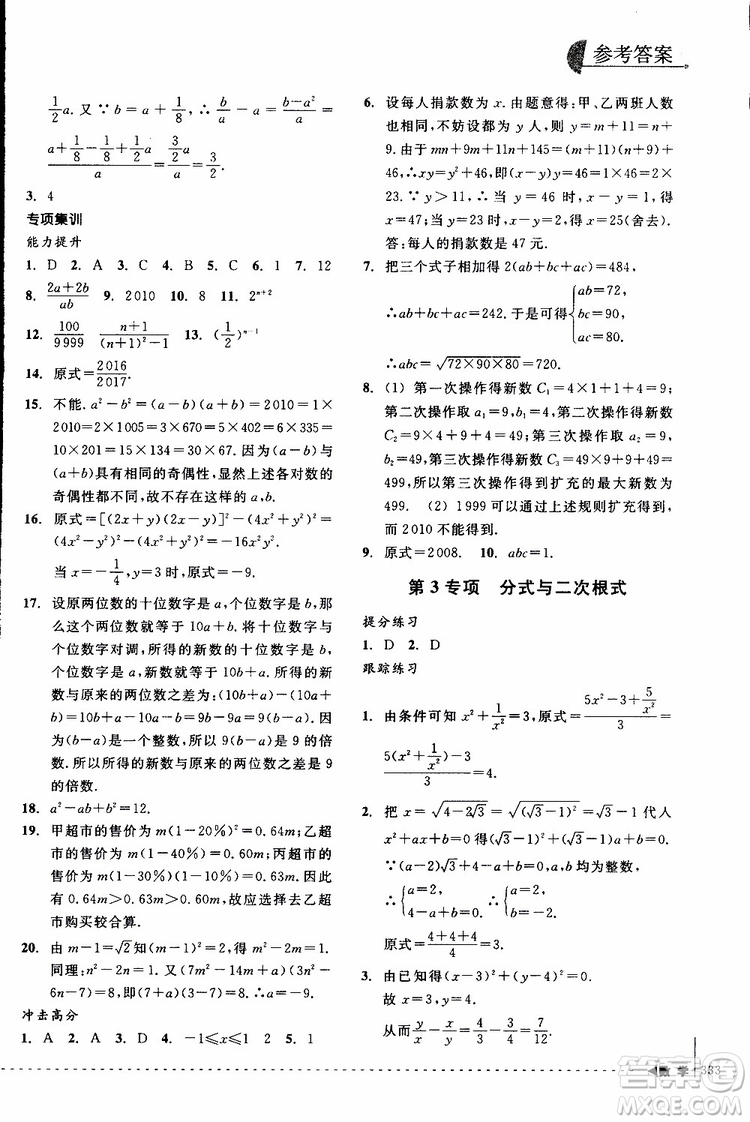 参考答案
1/2 a. 又∵b=a+1/8, ∴b/a-a=(b-a²)/a=
(a+1/8-1/8+1/2 a)/a=(3/2 a)/a=3/2.
3. 4
专项集训
能力提升
1. D 2. A 3. C 4. C 5. B 6. 1 7. 12
8. (2a+2b)/ab 9. 2010 10. 8 11. 2ⁿ⁺²
12. 100/9999 (n+1)/((n+1)²-1) 13. (1/2)ⁿ⁻¹
14. 原式=2016/2017.
15. 不能. a²-b²=(a-b)(a+b)=2010=1×
2010=2×1005=3×670=5×402=6×335
=10×201=15×134=30×67. 因为(a-b)与
(a+b)具有相同的奇偶性,上述各对数的
奇偶性都不同,故a、b不存在.
16. 原式=[(2x+y)(2x-y)]²-(4x²+y²)²=
(4x²-y²)²-(4x²+y²)²=-16x²y².
当x=-1/4, y=3时,原式=-9.
17. 设原两位数的十位数字是a,个位数字是b,那
么这个两位数就等于10a+b.将十位数字与
个位数字对调,所得的新数的十位数字是b,
个位数字是a,新数就等于10b+a.所得的新
数与原来的两位数之差为:(10b+a)-(10a
+b)=10b+a-10a-b=9b-9a=9(b-a).因
为(b-a)是一个整数,所以9(b-a)是9的倍
数.所以所得的新数与原来的两位数之差是9
的倍数.
18. a²-ab+b²=12.
19. 甲超市的售价为m(1-20%)²=0.64m;乙超
市的售价为m(1-40%)=0.6m;丙超市的售
价为m(1-30%)(1-10%)=0.63m. 因为
0.64m>0.63m>0.6m,故应选择去乙超
市购买较合算.
20. 由m-1=√2知(m-1)²=2.得m²-2m=1.
同理:n²-2n=1.∴(7m²-14m+a)(3n²-
6n-7)=8.∴(7+a)(3-7)=8.∴a=-9.
冲击高分
1. A 2. A 3. D 4. -1⩽x⩽1 5. 1
6. 设每人捐款数为x.由题意得:甲、乙两班人数
也相同,不妨设都为y人,即y=m+11=n+
9.由于mn+9m+11n+145=(m+11)(n+9)+
46,∴xy=y²+46,即(x-y)y=46=46×1=2×
23.∵y>11,∴当y=46时,x-y=1,x=47;
当y=23时,x-y=2,x=25,n+2=25(舍去).
答:每人的捐款数是47元.
7. 把三个式子相加得2(ab+bc+ac)=484,
∴ab+bc+ac=242.于是可得{ab=72, bc=90, ac=80.
∴abc=√(72×90×80)=720.
8. (1)第一次操作得新数C₁=4×1+1+4=9;
第二次操作取a₁=9,b₁=4,所以得新数
C₂=9×4+9+4=49;第三次操作取a₂=9,
b₂=49,所以新数C₃=9×49+9+49=
499.因此,三次操作所得到扩充的最大数为
499.(2)1999可以通过上述规则扩充得到,
而2010不能得到.
9. 原式=2008. 10. abc=1.
第3专项 分式与二次根式
提分练习
1. D 2. D
跟踪练习
1. 由条件可知x²+1/x²=3,原式=(5x²-3+5/x²)/3=
(5(x²+1/x²)-3)/3=4.
2. 把x=√(4-2√3)=√((√3-1)²)=√3-1代人
x²+ax+b=0得(a-2)√3+4-a+b=0.
∵(a-2)√3+4-a+b=0,a、b均为整数.
∴{a=2, 4-a+b=0, ∴{a=2, b=-2.
原式=(4+4+4)/4=3.
3. 由已知得(x-3)²+(y-4)²=0.
故x=3,y=4.
从而y/x-x/y=4/3-3/4=7/12.
数学 333
MXQE.COM